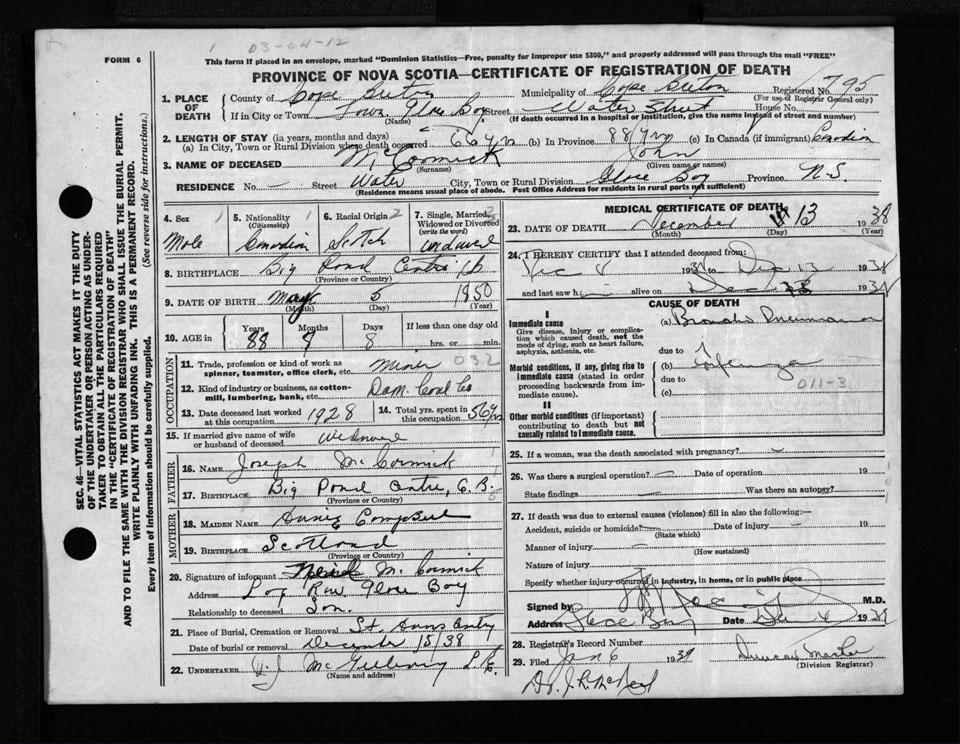 1 03-04-12
FORM 6
This form if placed in an envelope, marked "Dominion Statistics—Free, penalty for improper use $300," and properly addressed will pass through the mail "FREE"
PROVINCE OF NOVA SCOTIA—CERTIFICATE OF REGISTRATION OF DEATH
SEC. 46—VITAL STATISTICS ACT MAKES IT THE DUTY OF THE UNDERTAKER OR PERSON ACTING AS UNDERTAKER TO OBTAIN ALL THE PARTICULARS REQUIRED IN THE "CERTIFICATE OF REGISTRATION OF DEATH" AND TO FILE THE SAME WITH THE DIVISION REGISTRAR WHO SHALL ISSUE THE BURIAL PERMIT.
WRITE PLAINLY WITH UNFADING INK. THIS IS A PERMANENT RECORD.
Every item of information should be carefully supplied. (See reverse side for instructions.)
1. PLACE OF DEATH County of Cape Breton Municipality of Cape Breton Registered No. 795
(For use of Registrar General only)
If in City or Town Town Glace Bay Street Water Street House No.
(Name) (If death occurred in a hospital or institution, give the name instead of street and number)
2. LENGTH OF STAY (in years, months and days)
(a) In City, Town or Rural Division where death occurred 66 yrs (b) In Province 88 yrs (c) In Canada (if immigrant) Canadian
3. NAME OF DECEASED McCormick John
(Surname) (Given name or names)
RESIDENCE No. — Street Water City, Town or Rural Division Glace Bay Province N.S.
(Residence means usual place of abode. Post Office Address for residents in rural parts not sufficient)
4. Sex 1 5. Nationality 1 6. Racial Origin 2 7. Single, Married, 3
(Citizenship) Widowed or Divorced
(write the word)
Male Canadian Scotch
8. BIRTHPLACE Big Pond Centre CB
(Province or Country)
9. DATE OF BIRTH May 5 1850
(Month) (Day) (Year)
10. AGE in Years Months Days If less than one day old
88 8 hrs. or min.
OCCUPATION
11. Trade, profession or kind of work as spinner, teamster, office clerk, etc. Miner 032
12. Kind of industry or business, as cotton-mill, lumbering, bank, etc. Dom. Coal Co
13. Date deceased last worked at this occupation 1928 14. Total yrs. spent in this occupation 56 yrs
15. If married give name of wife or husband of deceased
FATHER
16. NAME Joseph McCormick
17. BIRTHPLACE Big Pond Centre, C.B.
(Province or Country)
MOTHER
18. MAIDEN NAME Annie Campbell
19. BIRTHPLACE Scotland
(Province or Country)
20. Signature of informant McCormick
Address Row Glace Bay
Relationship to deceased Son.
21. Place of Burial, Cremation or Removal St. Anns
Date of burial or removal December 15/38
22. UNDERTAKER
(Name and address)
MEDICAL CERTIFICATE OF DEATH
23. DATE OF DEATH December 13 1938
(Month) (Day) (Year)
24. I HEREBY CERTIFY that I attended deceased from:
Dec 1938 to Dec 13 1938
and last saw h alive on Dec 1938
CAUSE OF DEATH
I
Immediate cause (a) Broncho Pneumonia
Give disease, injury or complication which caused death, not the mode of dying, such as heart failure, asphyxia, asthenia, etc.
due to
Morbid conditions, if any, giving rise to immediate cause (stated in order proceeding backwards from immediate cause). (b) Influenza
due to 011-3
(c)
II
Other morbid conditions (if important) contributing to death but not causally related to immediate cause.
25. If a woman, was the death associated with pregnancy? —
26. Was there a surgical operation? — Date of operation 19
State findings — Was there an autopsy?
27. If death was due to external causes (violence) fill in also the following:—
Accident, suicide or homicide? — Date of injury — 19
(State which)
Manner of injury —
(How sustained)
Nature of injury
Specify whether injury occurred in industry, in home, or in public place.
Signed by M.D.
Address Glace Bay Date 1938
28. Registrar's Record Number
29. Filed Jan 6 1939 Duncan
(Division Registrar)
Dr. J. R. McNeil